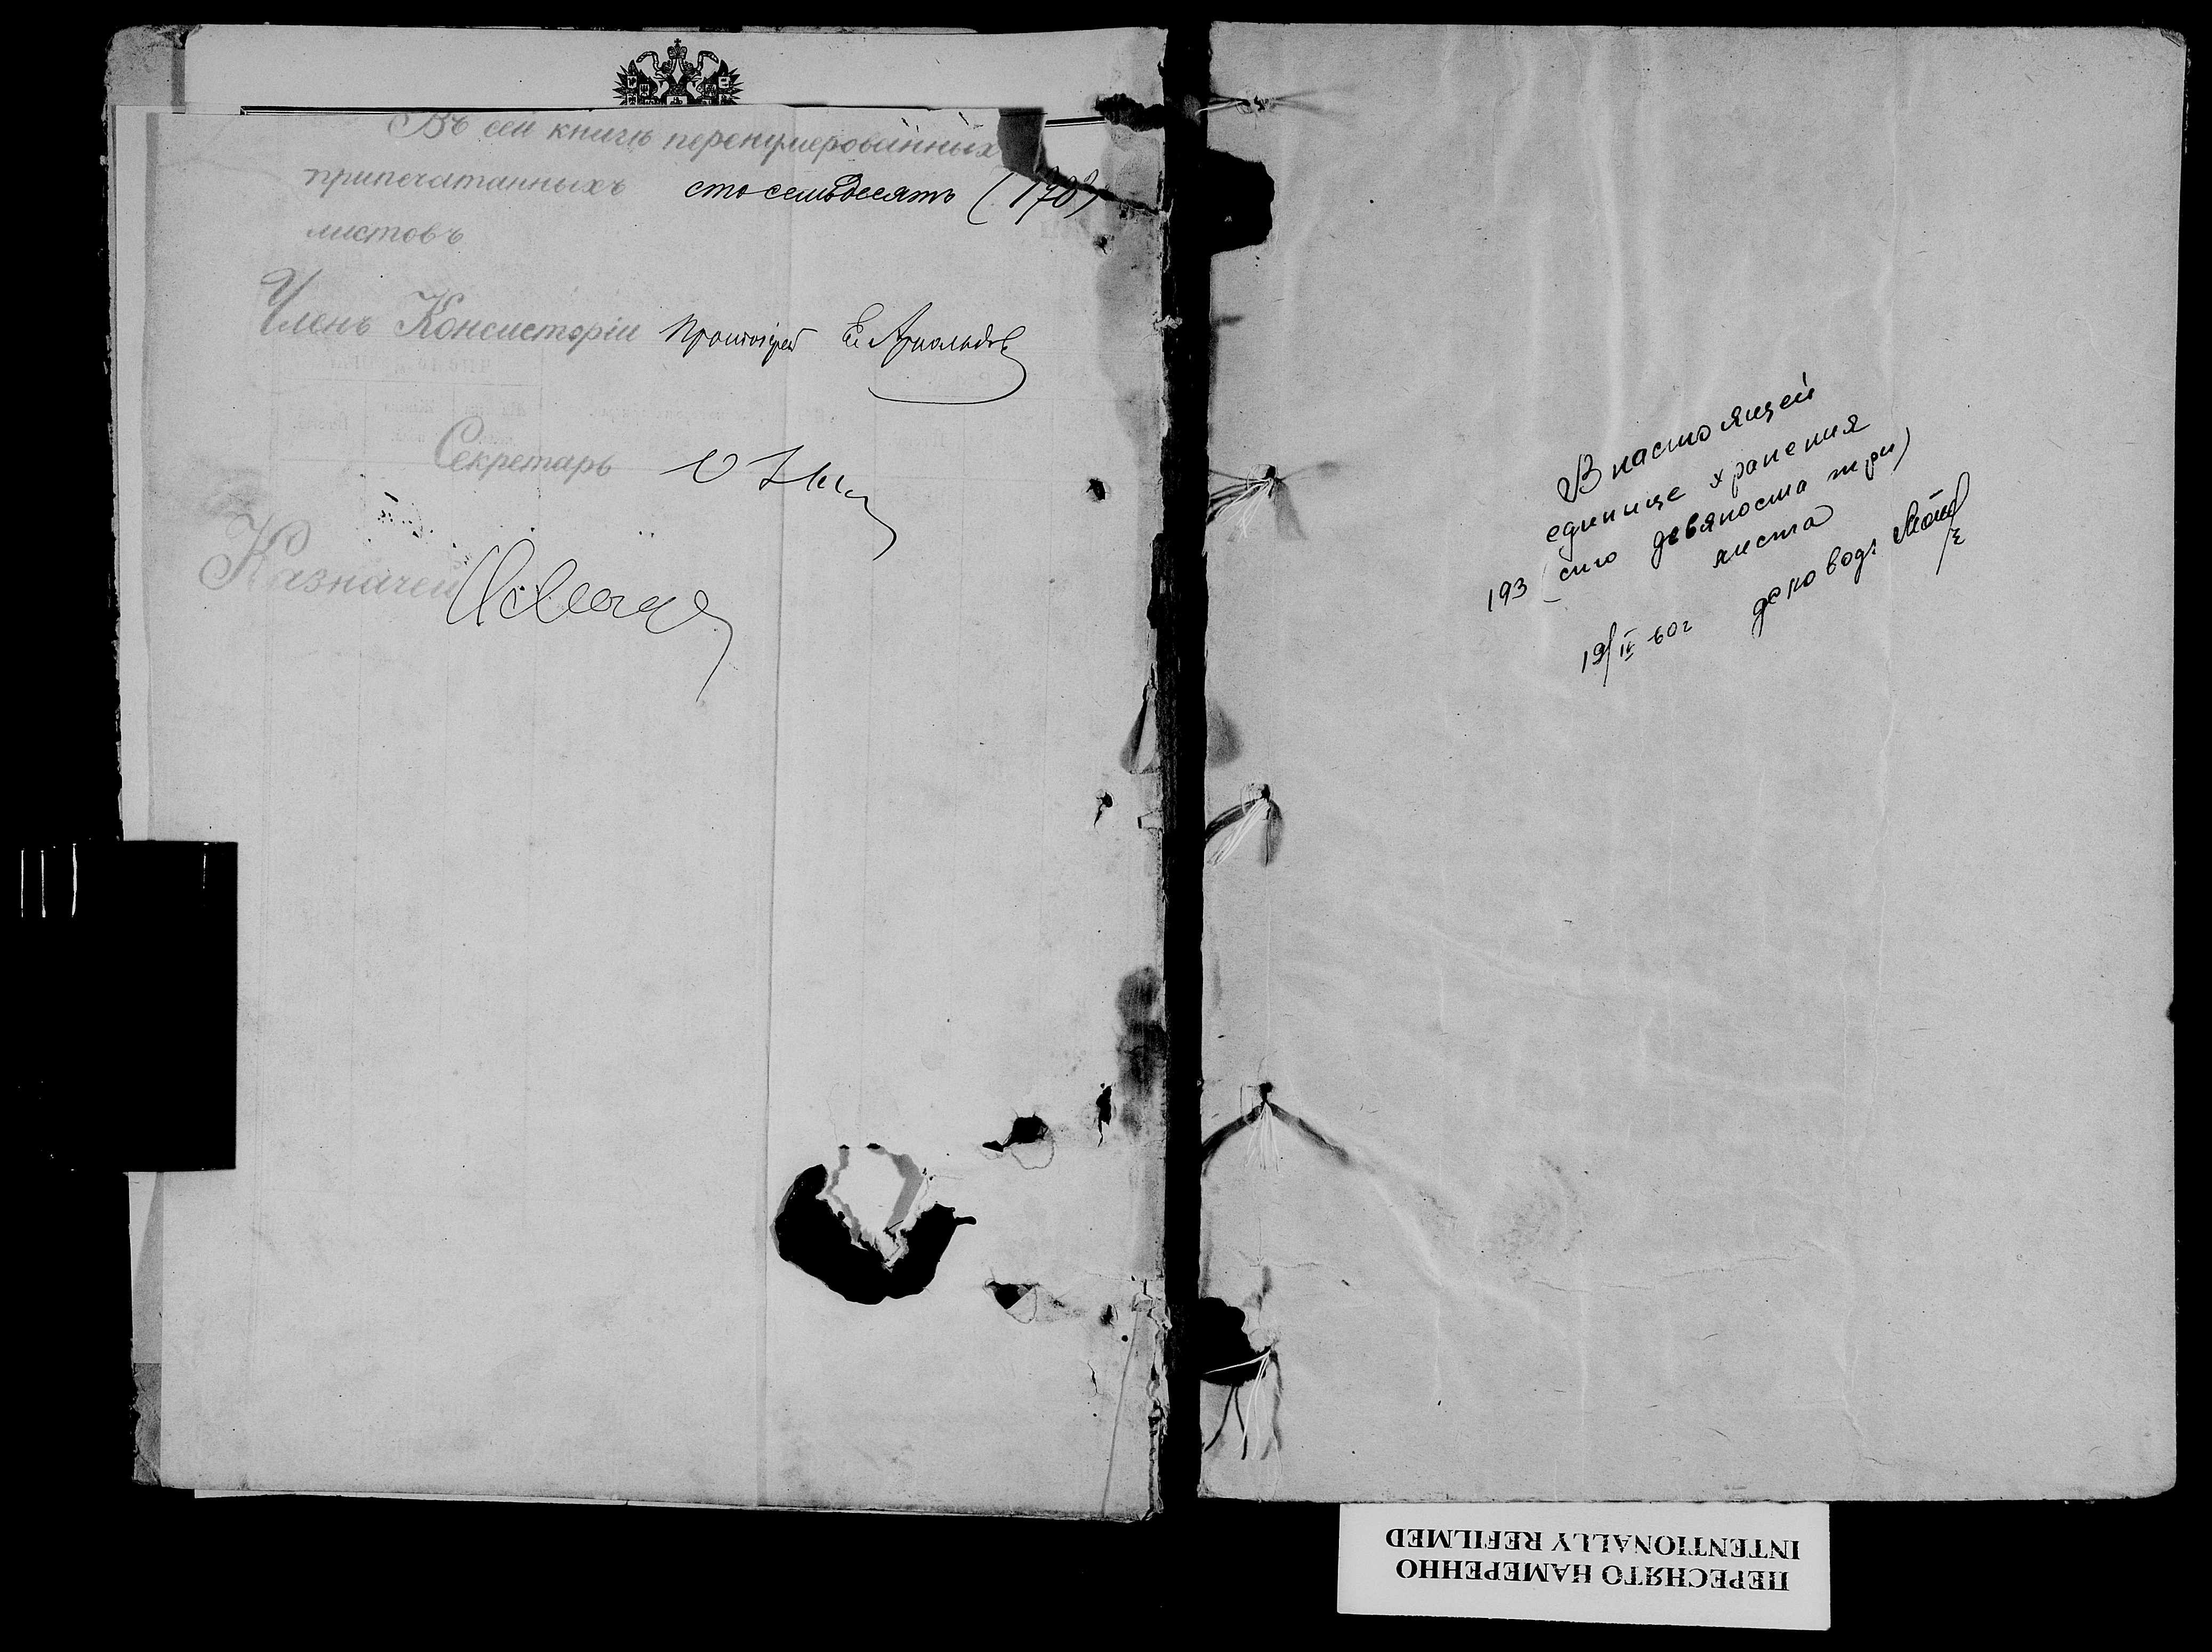 Въ сей книгѣ перенумерованныхъ
припечатанныхъ сто семьдесятъ (170)
листовъ
Членъ Консисторіи Протоіерей
Секретарь
Казначей
В настоящей
единице хранения
193 (сто девяноста три)
листа
19/IV 60г
ПЕРЕСНЯТО НАМЕРЕННО
INTENTIONALLY REFILMED